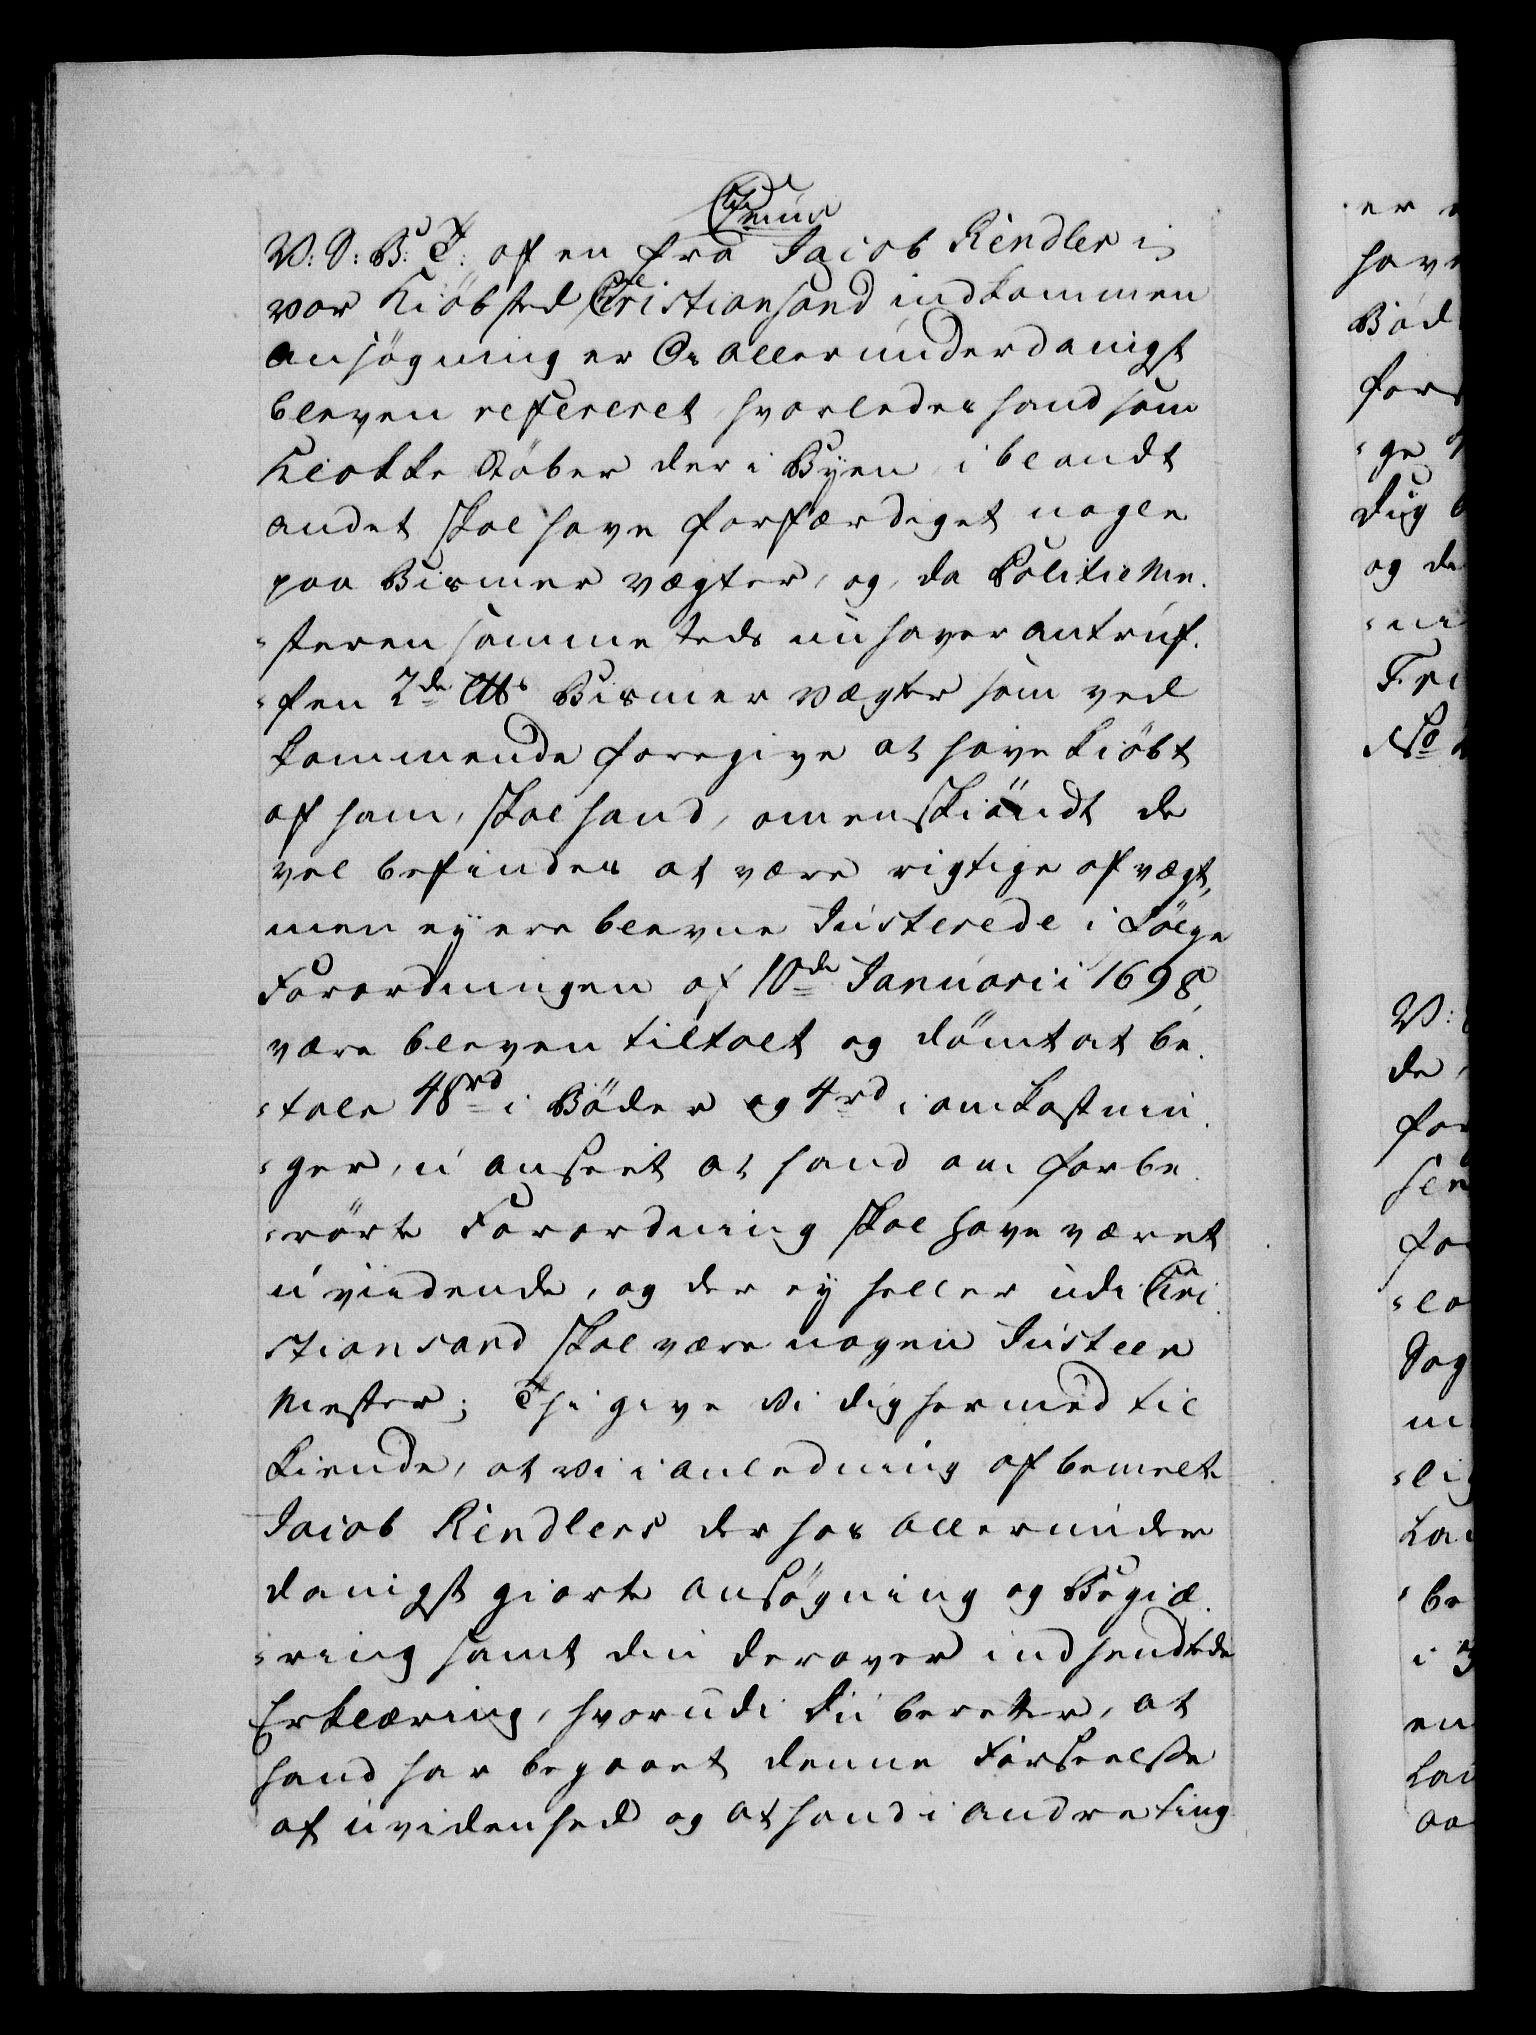 V: G: B: T: af en fra Jacob Kindler i
vor Kiöbsted Christiansand indkommen
ansögning er Os allerunderdanigst
bleven refereret hvorledes hand som
Klokke Stöber der i Byen, iblandt
andet skal have forfærdiget nogle
paa Bismer vægter, og, da Politieme-
-steren sammesteds nu haver antruf-
-fen 2de Bismer vægter som ved
kommende foregive at have kiöbt
af ham, skal hand, omenskiöndt de
vel befindes at være rigtige af vægt,
men ey ere blevne Justerede i Fölge
Forordningen af 10de Januarii 1698,
være bleven tiltalt og dömt at be-
-tale 48rd i Böder og 4rd i omkostnin-
-ger, u anseet at hand om forbe-
-rörte Forordning skal have været
uvidende, og der ey heller udi Chri-
stiansand skal være nogen Justeer
Mester; Thi give Vi dig hermed til
kiende, at Vi i anledning af bemelte
Jacob Kindlers der hos allerunder
danigst giorte ansögning og Begiæ-
-ring samt din derover indsendte
Erklæring, hvorudi du beretter, at
hand har begaaet denne Forseelse
af uvidenhed og at hand i andre ting